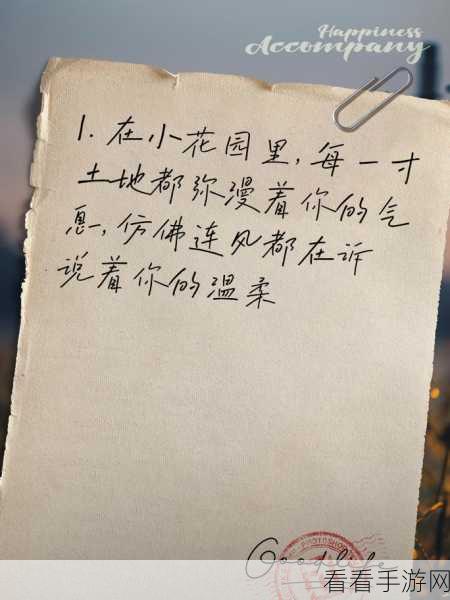 Happiness
Accompany
1. 在小花园里，每一寸
土地都弥漫着你的气
息，仿佛连风都在诉
说着你的温柔
PHOTOSHOP
Good life
看看手游网